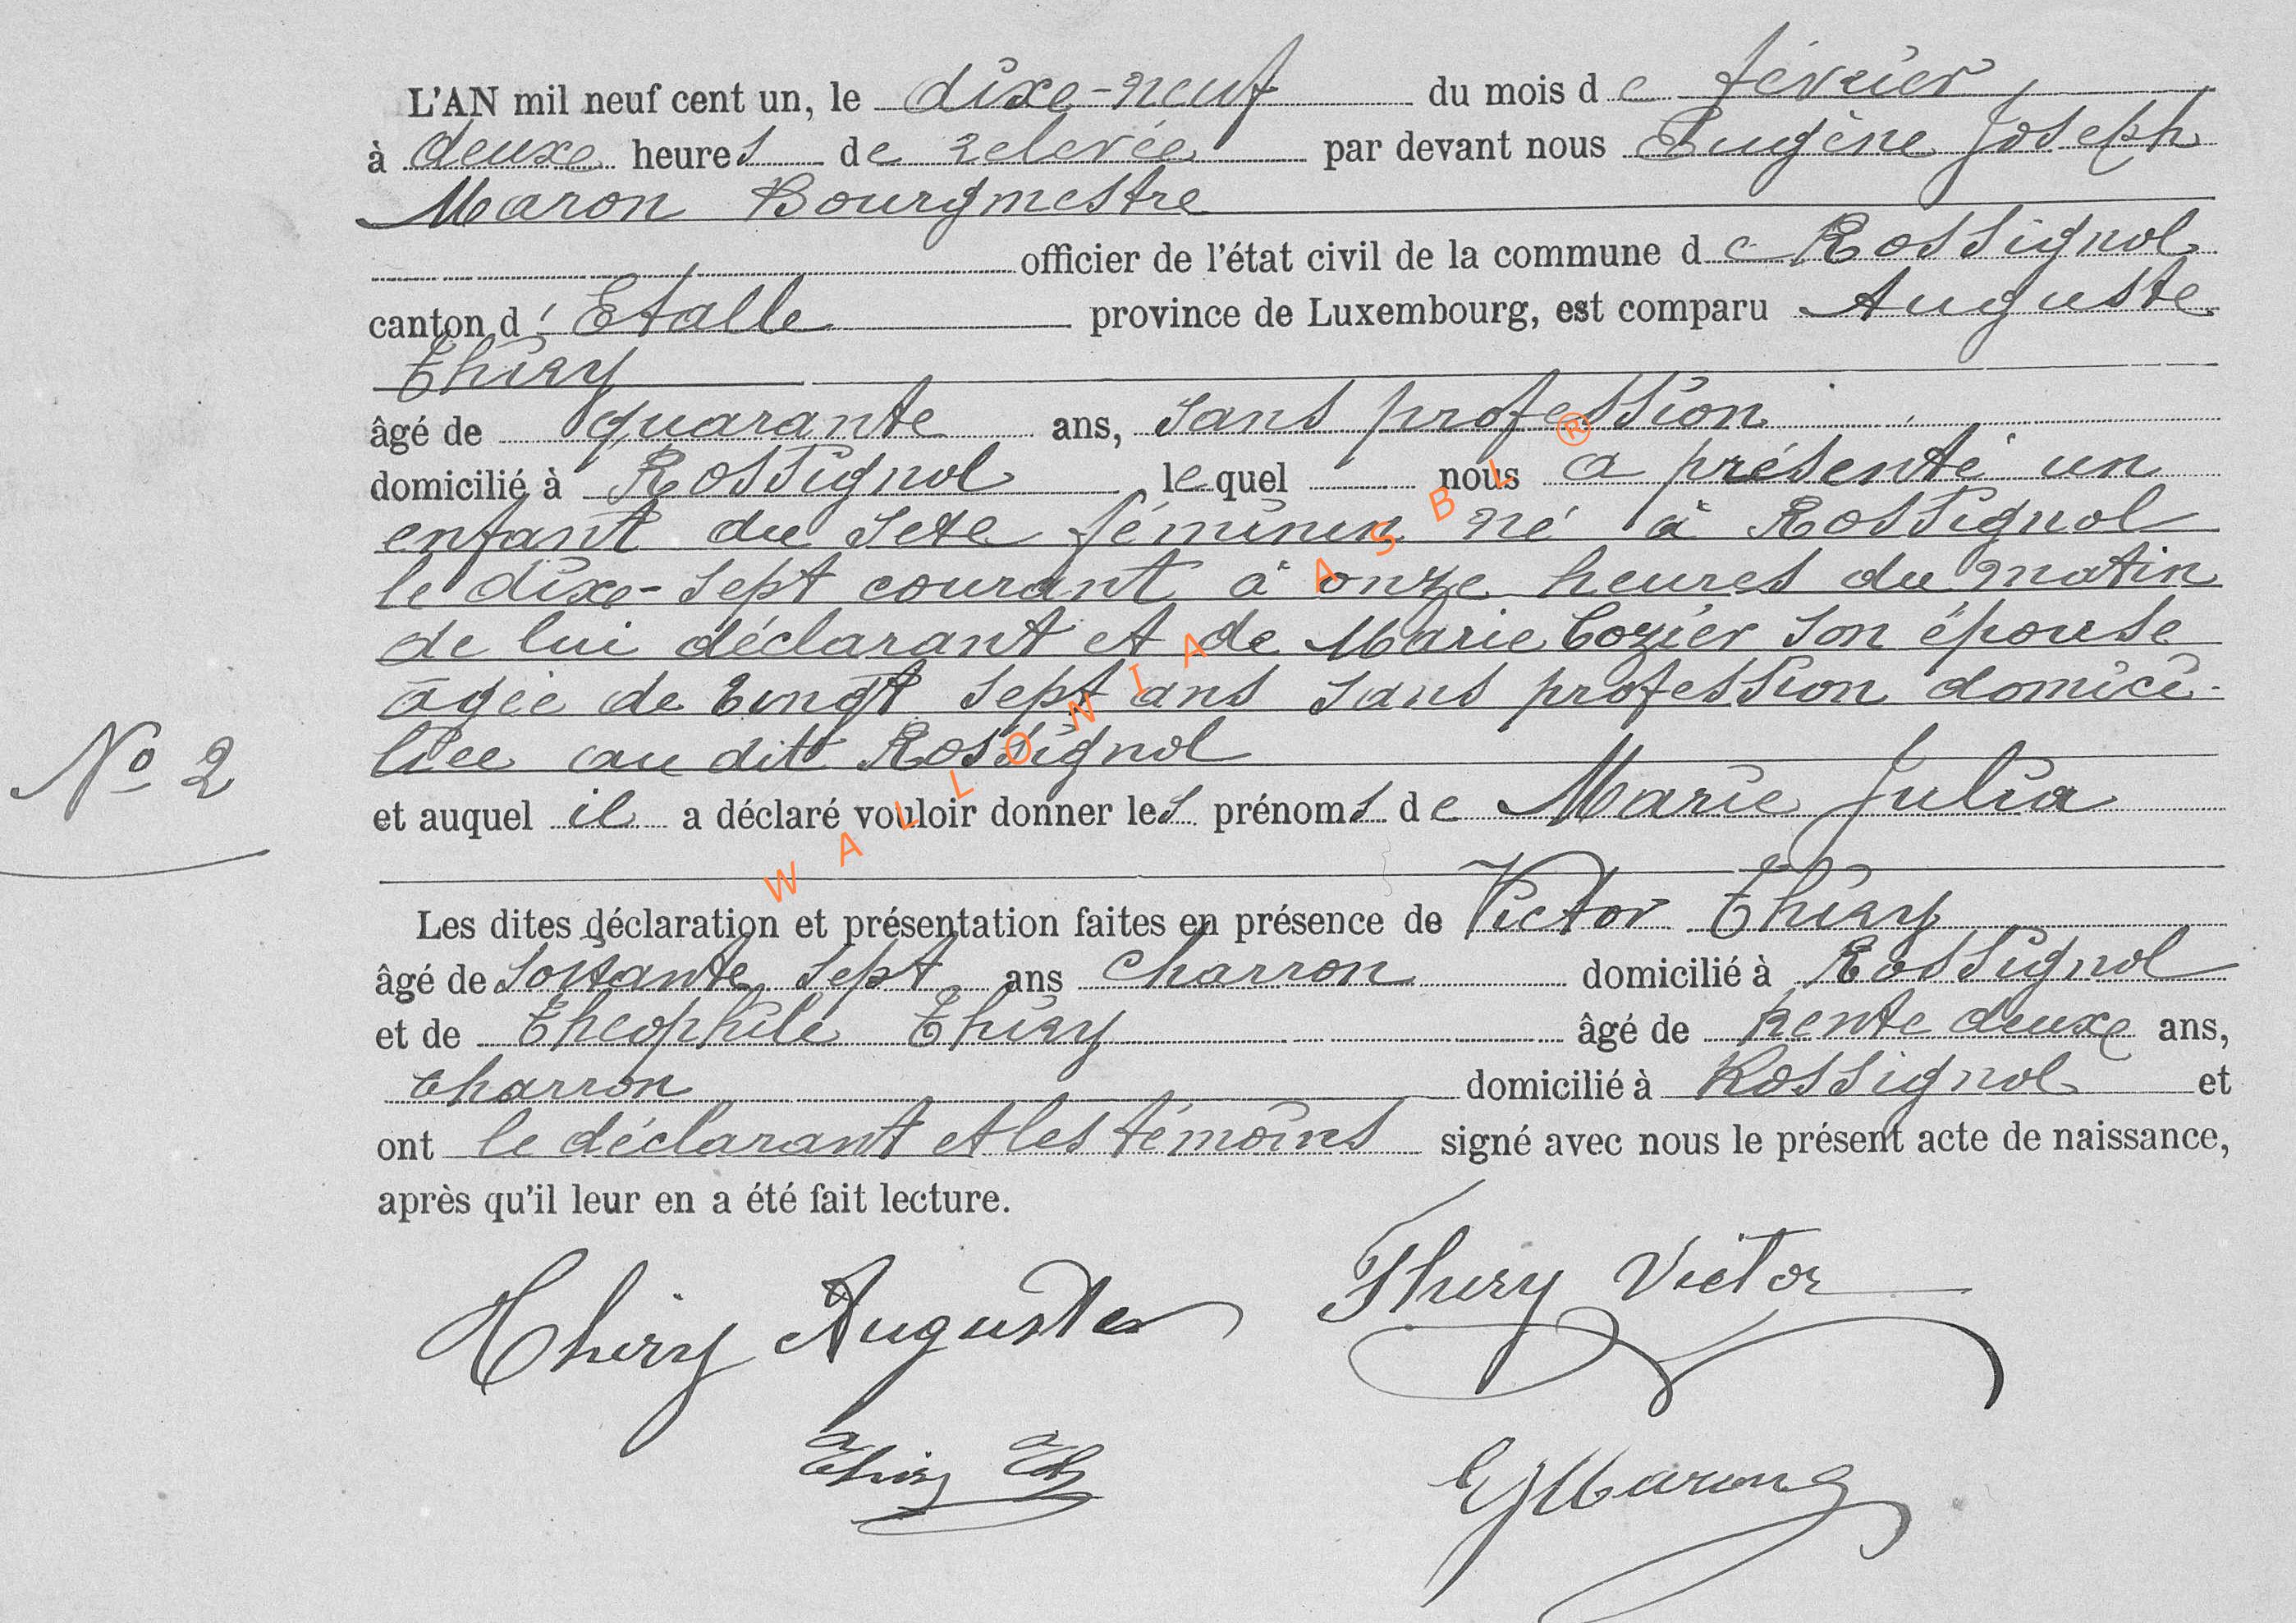 L'AN mil neuf cent un, le dixe-neuf du mois de février
à deuxe heures de relevée par devant nous Eugène Joseph
Maron Bourgmestre
officier de l'état civil de la commune de Rossignol
canton d'Etalle province de Luxembourg, est comparu Auguste
Thiry
âgé de quarante ans, sans profession
domicilié à Rossignol lequel nous a présenté un
enfant du sexe féminin né à Rossignol
le dixe-sept courant à onze heures du matin
de lui déclarant et de Marie Cozier son épouse
âgée de vingt sept ans sans profession domici-
liée au dit Rossignol
No 2
et auquel il a déclaré vouloir donner les prénoms de Marie Julia
Les dites déclaration et présentation faites en présence de Victor Thiry
âgé de soixante sept ans charron domicilié à Rossignol
et de Théophile Thiry âgé de trente deuxe ans,
charron domicilié à Rossignol et
ont le déclarant et les témoins signé avec nous le présent acte de naissance,
après qu'il leur en a été fait lecture.
Thiry Auguste Thiry Victor
Thiry Th EJMaron
WALLONIA ASBL ®